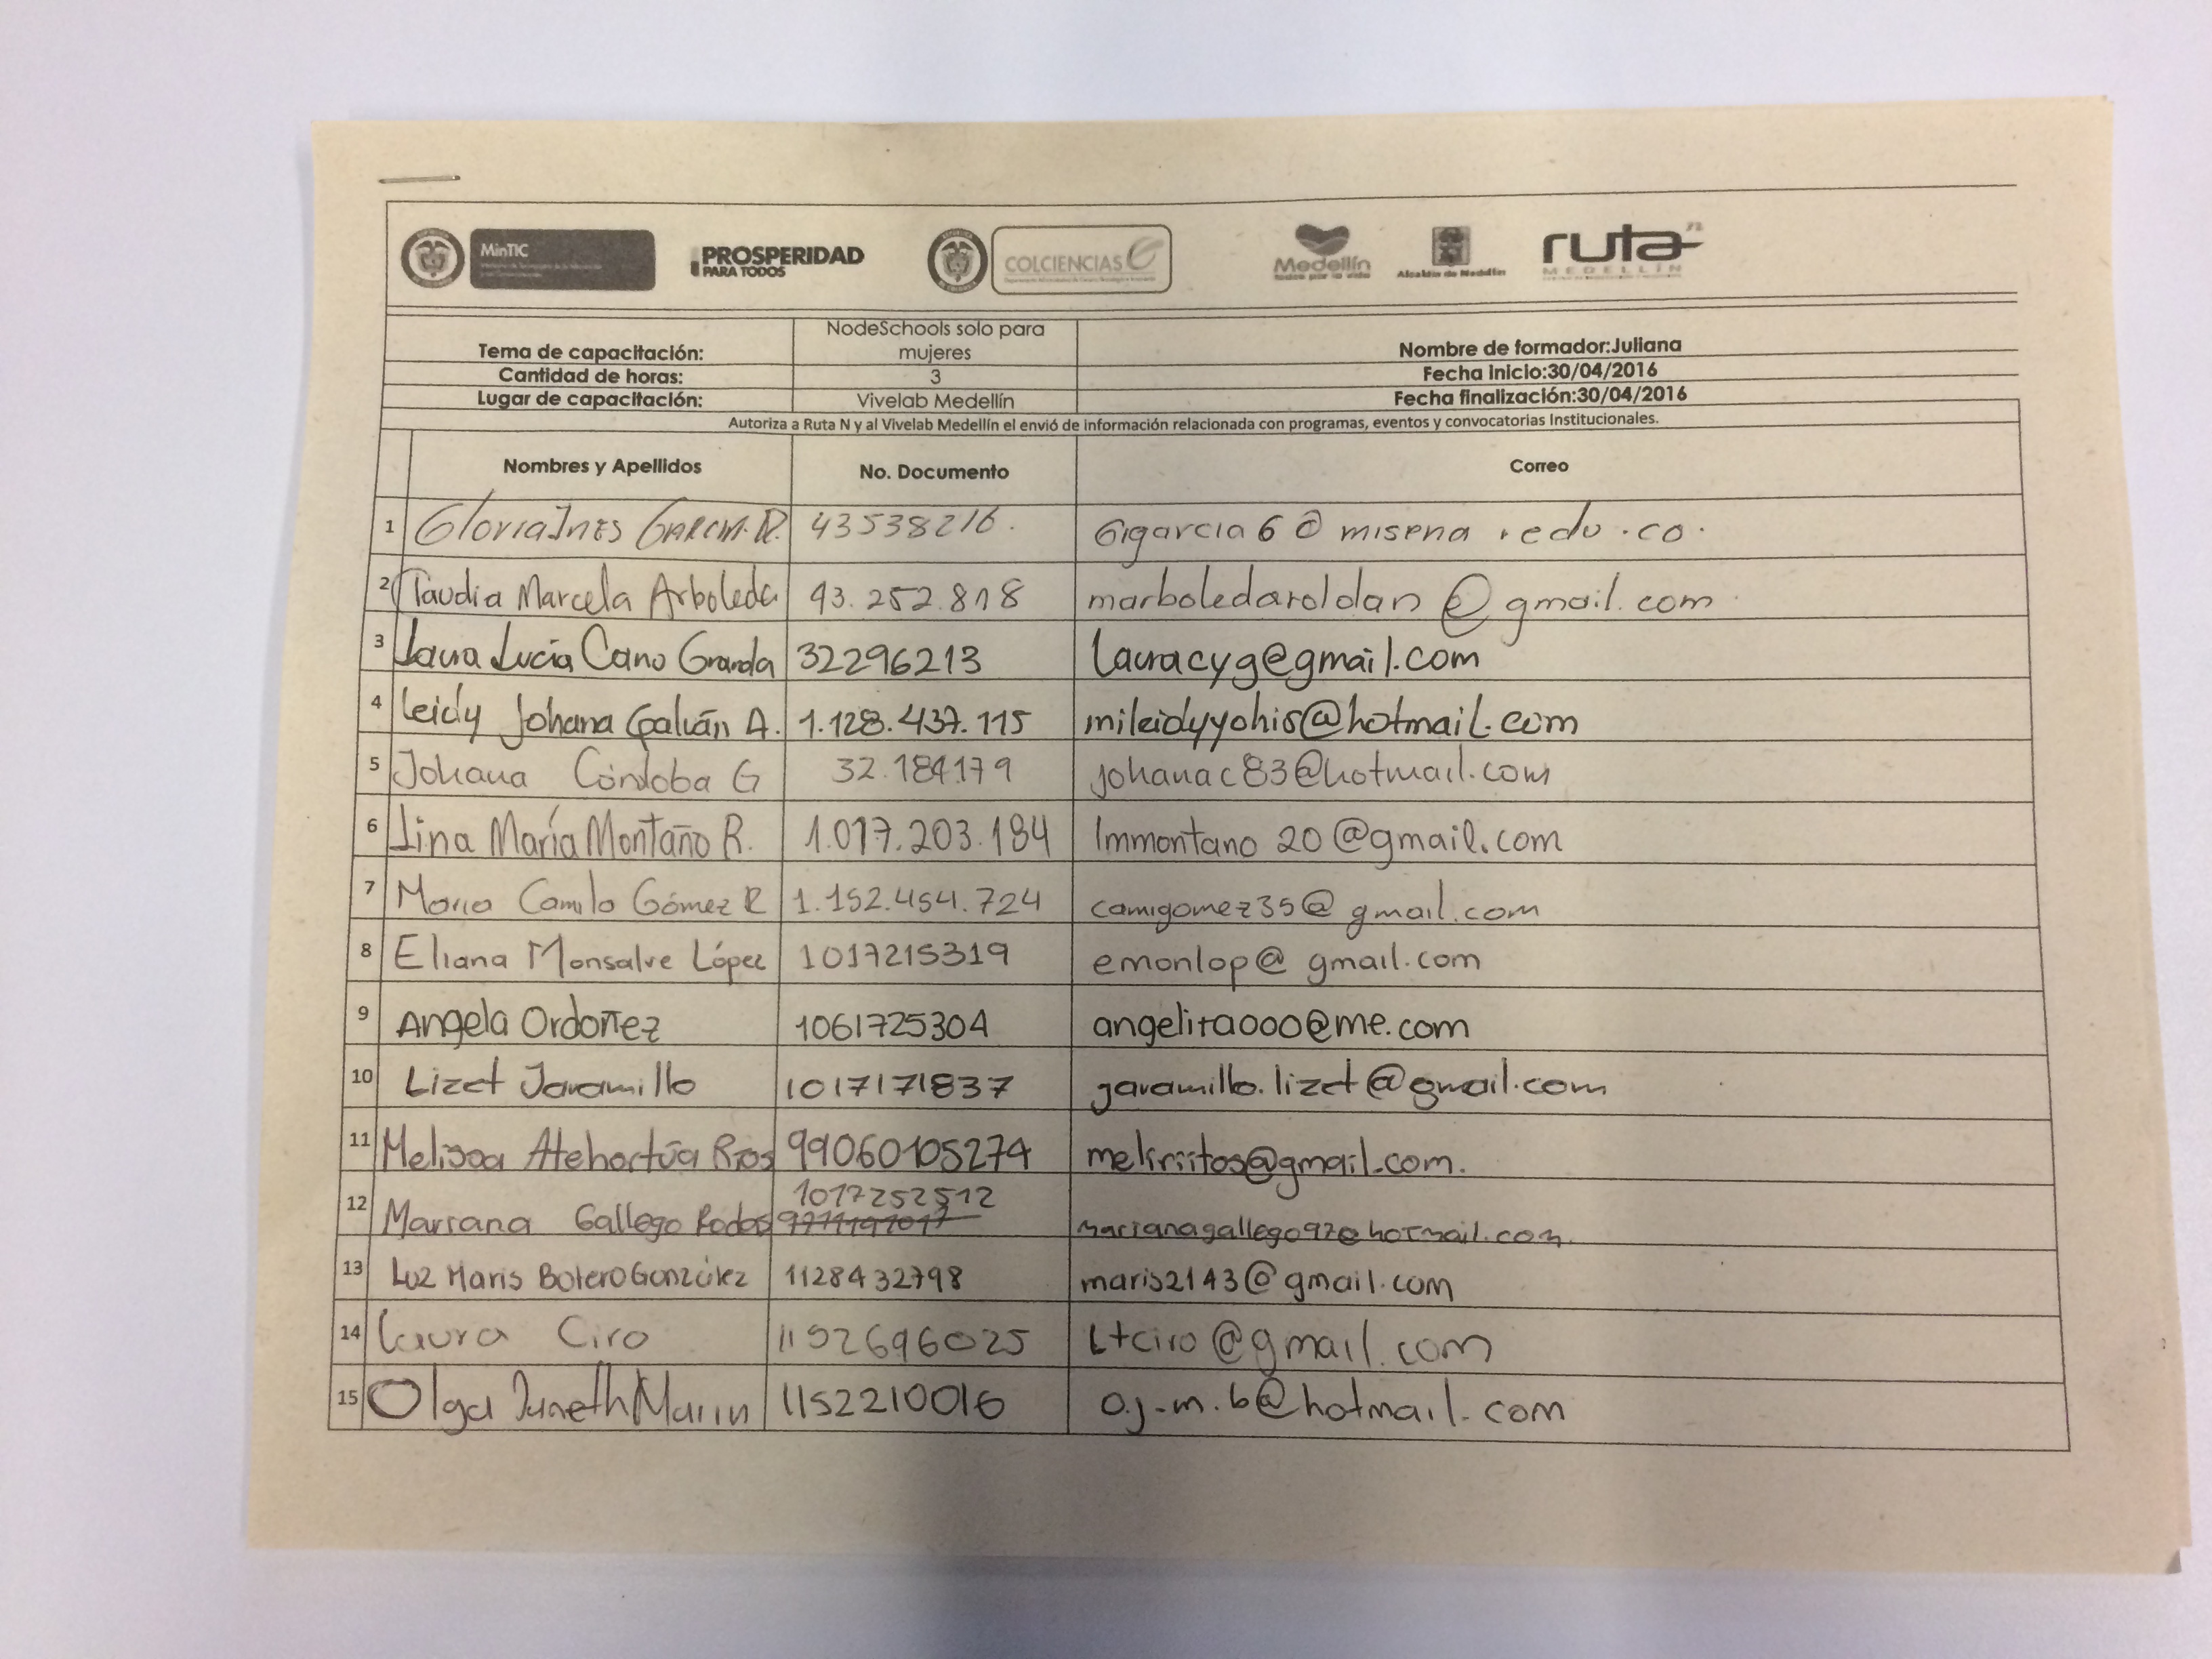 MinTIC
PROSPERIDAD
PARA TODOS
COLCIENCIAS
Medellín
todos por la vida
Alcaldía de Medellín
ruta
MEDELLÍN
Tema de capacitación: NodeSchools solo para mujeres Nombre de formador:Juliana
Cantidad de horas: 3 Fecha inicio:30/04/2016
Lugar de capacitación: Vivelab Medellín Fecha finalización:30/04/2016
Autoriza a Ruta N y al Vivelab Medellín el envió de información relacionada con programas, eventos y convocatorias Institucionales.
Nombres y Apellidos No. Documento Correo
1 Gloria Ines García R. 43538216. Gigarcia6@misena.edu.co.
2 Claudia Marcela Arboleda 43.252.818 marboledaroldan@gmail.com.
3 Laura Lucía Cano Granda 32296213 Lauracyg@gmail.com
4 Leidy Johana Galván A. 1.128.437.115 mileidyyohis@hotmail.com
5 Johana Córdoba G 32.184179 johanac83@hotmail.com
6 Lina María Montaño R. 1.017.203.184 lmmontano20@gmail.com
7 Maria Camila Gómez R 1.152.454.724 camigomez35@gmail.com
8 Eliana Monsalve López 1017215319 emonlop@gmail.com
9 Angela Ordoñez 1061725304 angelita000@me.com
10 Lizet Jaramillo 1017171837 jaramillo.lizet@gmail.com
11 Melissa Atehortúa Ríos 99060105274 melsriitos@gmail.com.
12 Mariana Gallego 1017252512 marianagallego97@hotmail.com.
13 Luz Maris Botero González 1128432798 maris2143@gmail.com
14 Laura Ciro 1152696025 Ltciro@gmail.com
15 Olga Janeth Marin 1152210016 o.j-m.b@hotmail.com